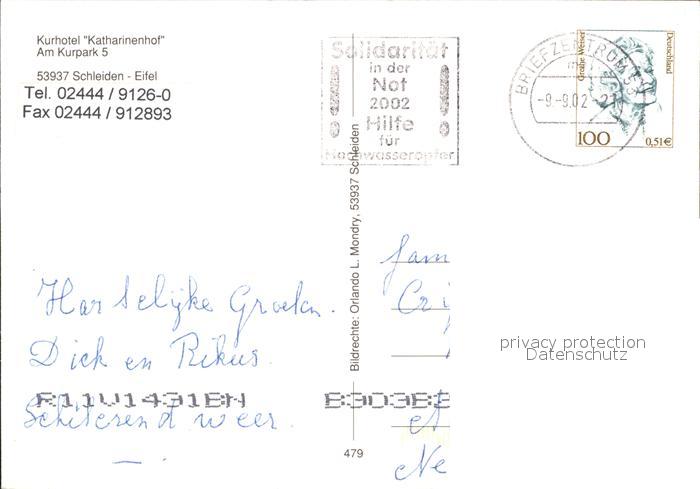 Kurhotel "Katharinenhof"
Am Kurpark 5
53937 Schleiden - Eifel
Tel. 02444 / 9126-0
Fax 02444 / 912893
Solidarität
in der
Not
2002
Hilfe
für
Hochwasseropfer
BRIEFZENTRUM 53
-9.-9.02.-21
Grethe Weiser
Deutschland
100
0,51€
Bildrechte: Orlando L. Mondry, 53937 Schleiden
Fam
Cri
Har telijke Groeten.
Dick en Rikus.
R11V1431BN
B303B
Schiterend weer.
et
Ne
479
privacy protection
Datenschutz